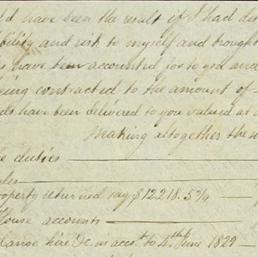 have been the result if I had
bility and risk to myself and brought
have been accounted for to you
ing contracted to the amount of
ds have been delivered to you valued at
making altogether the
duties
property returned say $12218.5¼
House accounts
here &c as acct. to 4th June 1829